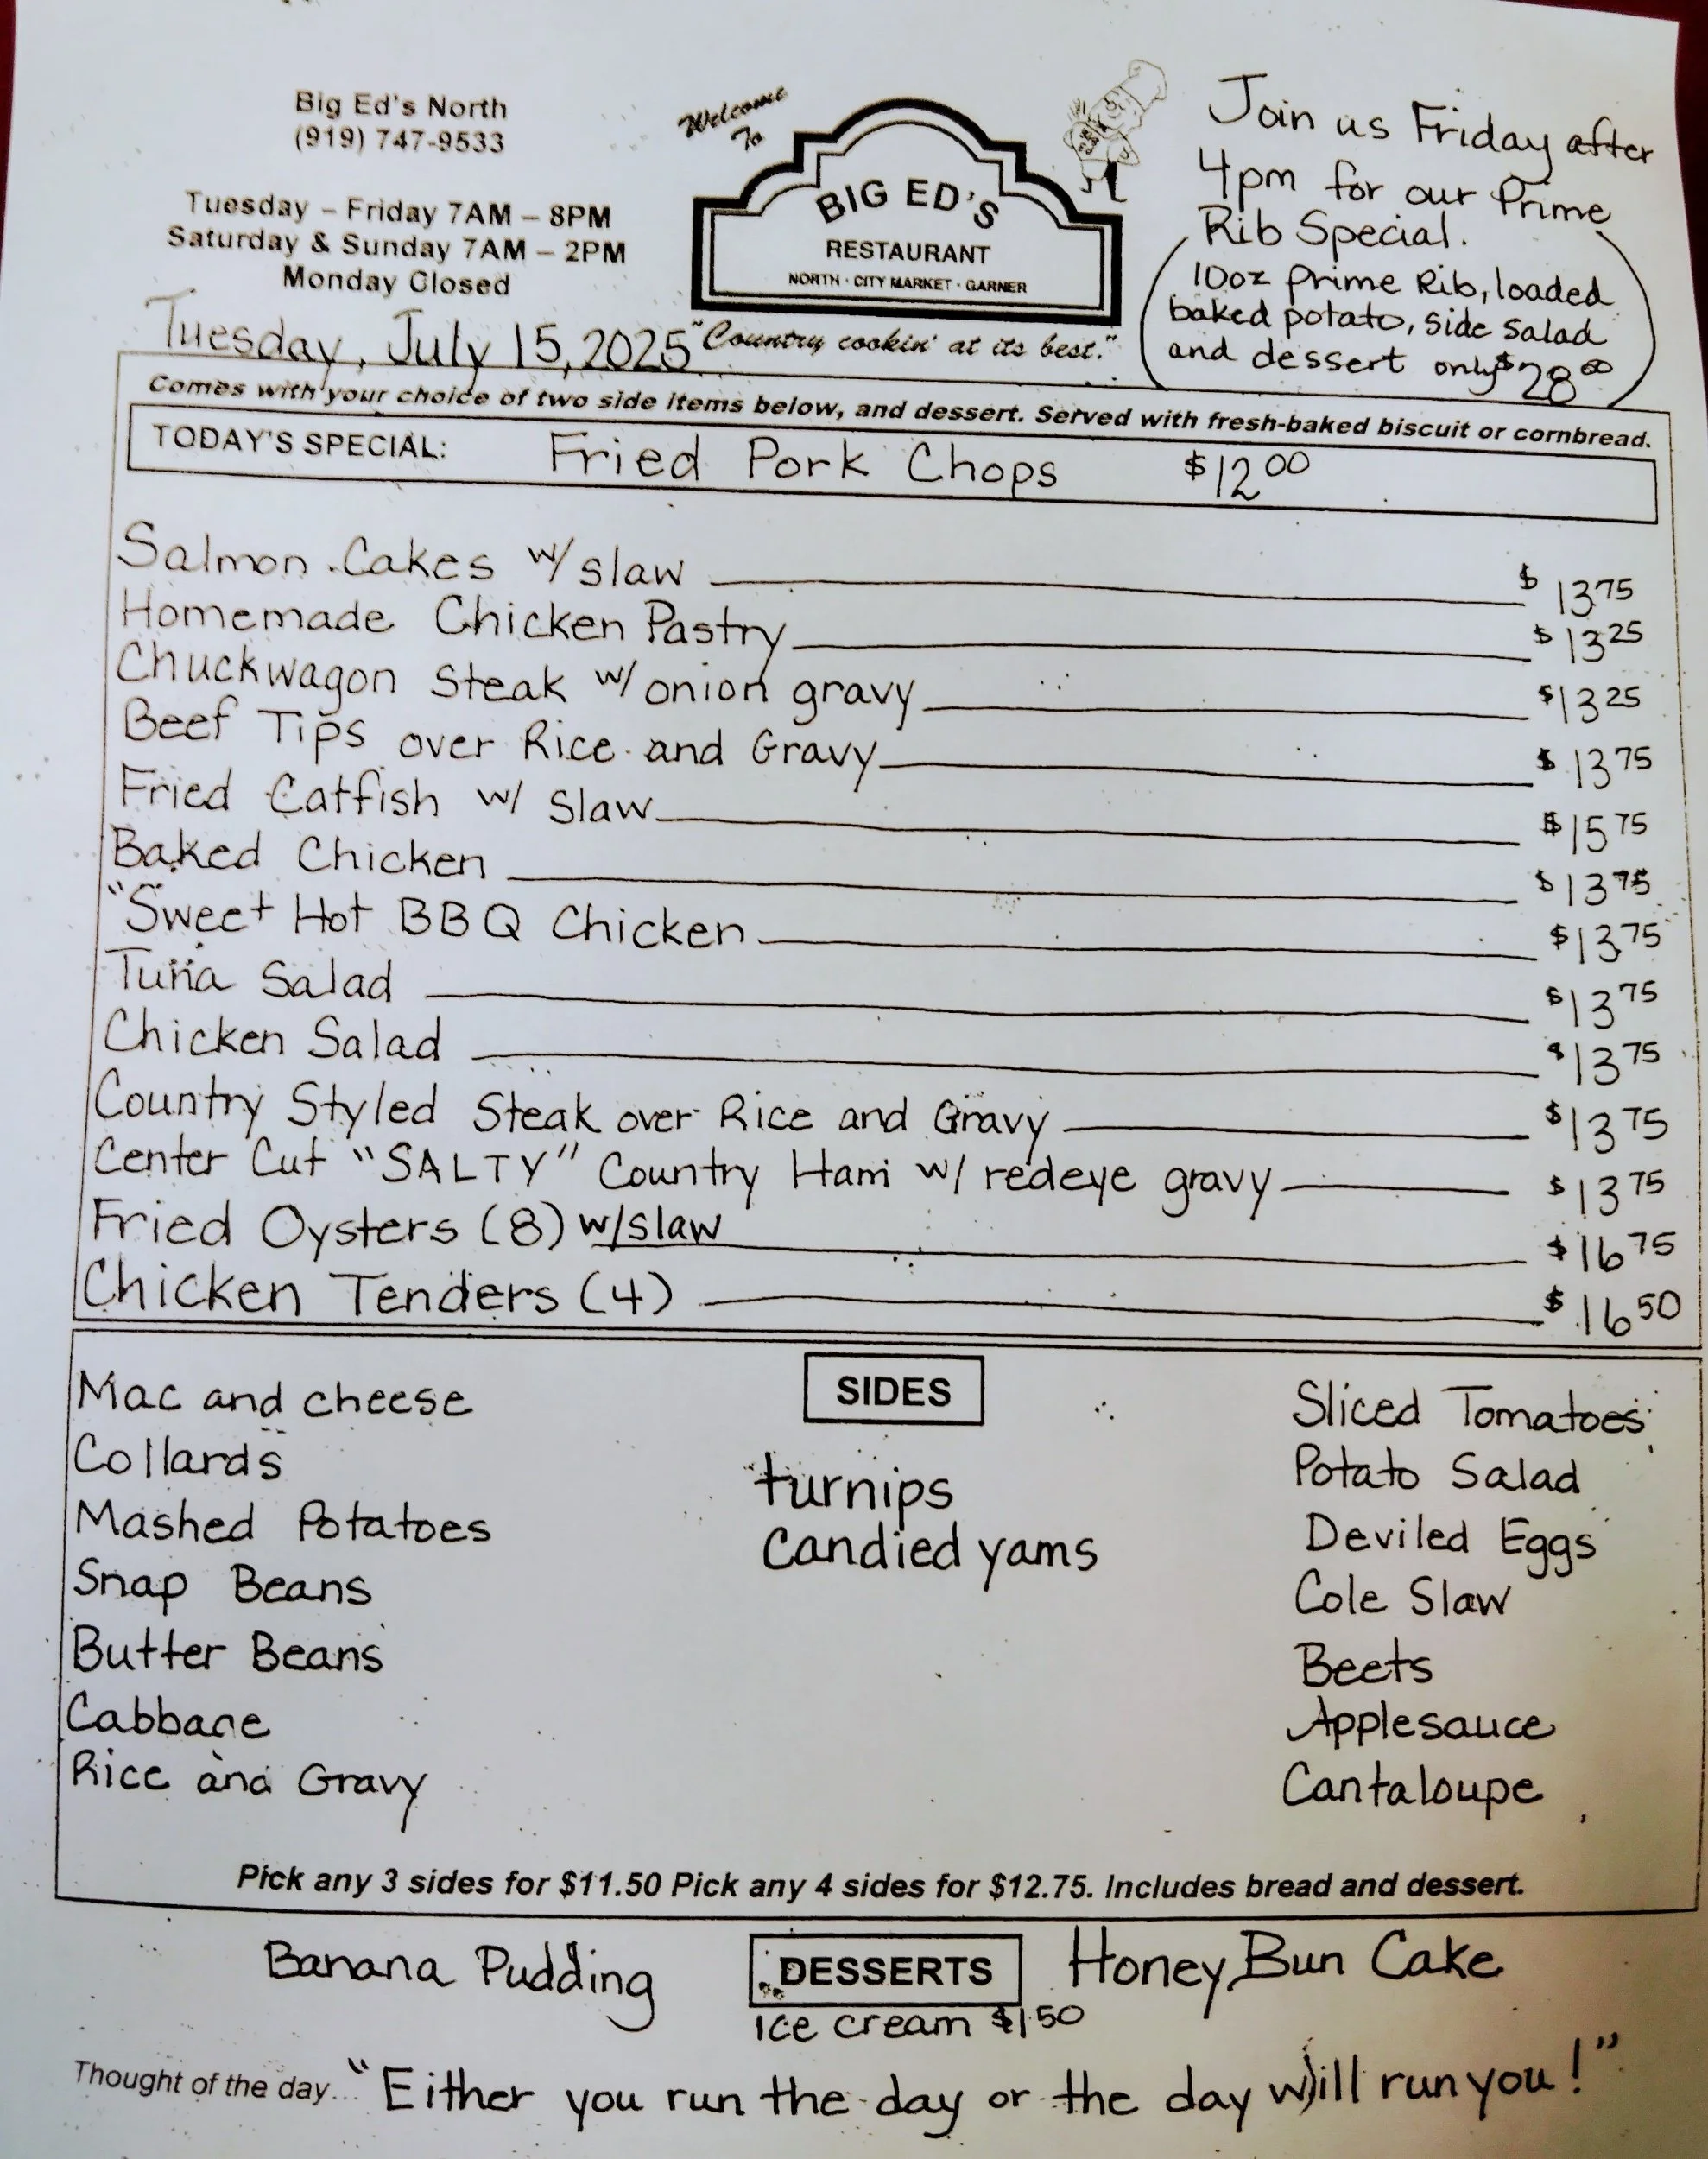 Big Ed's North
(919) 747-9533
Tuesday – Friday 7AM – 8PM
Saturday & Sunday 7AM – 2PM
Monday Closed
Tuesday, July 15, 2025
Welcome
To
BIG ED'S
RESTAURANT
NORTH · CITY MARKET · GARNER
"Country cookin' at its best."
Join us Friday after
4pm for our Prime
Rib Special.
10oz Prime Rib, loaded
baked potato, side salad
and dessert only $28.00
Comes with your choice of two side items below, and dessert. Served with fresh-baked biscuit or cornbread.
TODAY'S SPECIAL: Fried Pork Chops $12 00
Salmon Cakes w/ slaw $13.75
Homemade Chicken Pastry $13 25
Chuckwagon Steak w/ onion gravy $13 25
Beef Tips over Rice and Gravy $13 75
Fried Catfish w/ Slaw $15 75
Baked Chicken $13 75
"Sweet Hot BBQ Chicken $13.75
Tuna Salad $13 75
Chicken Salad $13 75
Country Styled Steak over Rice and Gravy $13 75
Center Cut "SALTY" Country Ham w/ redeye gravy $13 75
Fried Oysters (8) w/slaw $16 75
Chicken Tenders (4) $16 50
SIDES
Mac and cheese
Collards
Mashed Potatoes
Snap Beans
Butter Beans
Cabbage
Rice and Gravy
turnips
Candied yams
Sliced Tomatoes
Potato Salad
Deviled Eggs
Cole Slaw
Beets
Applesauce
Cantaloupe
Pick any 3 sides for $11.50 Pick any 4 sides for $12.75. Includes bread and dessert.
Banana Pudding DESSERTS Honey Bun Cake
Ice cream $1.50
Thought of the day... "Either you run the day or the day will run you!"